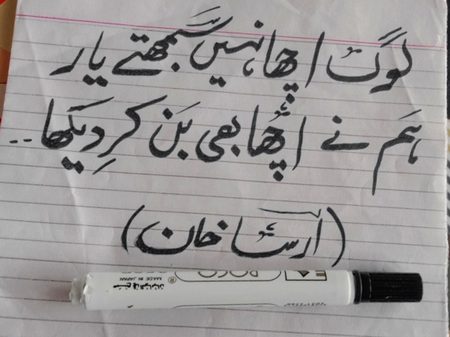 لوگ اچھا نہیں سمجھتے یار
ہم نے اچھا بھی بن کر دیکھا۔۔
(آرسا خان)
MADE IN JAPAN